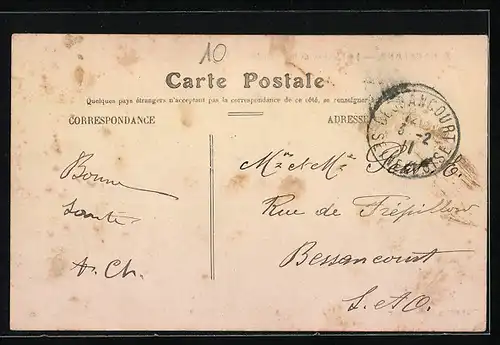 10
Carte Postale
Quelques pays étrangers n'acceptant pas la correspondance de ce côté, se renseigner
CORRESPONDANCE
ADRESSE
BESSANCOURT
-2
11
Bonne
Santé
A. Ch.
Mr et Me
Rue de Frépillon
Bessancourt
S. & O.